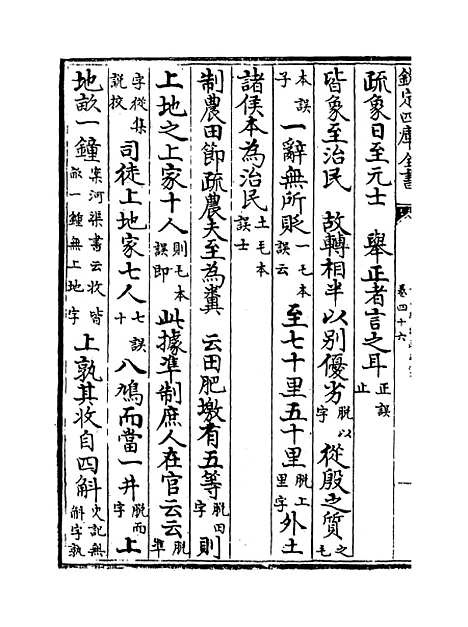 欽定四庫全書 卷四十六
疏象日至元士 舉正者言之耳正誤止
皆象至治民 故轉相半以別優劣脱以字從殷之質之毛
本誤子一辭無所貶一毛本誤云至七十里五十里脱上里字外土
諸侯本為治民土毛本誤士
制農田節疏農夫至為糞 云田肥墽有五等脱田字則
上地之上家十人則毛本誤即此據準制庶人在官云云脱準
字從集説挍司徒上地家七人七誤十八鳩而當一井脱而字上
地畝一鐘案河渠書云收皆畝一鍾無上地字上孰其收自四斛史記無斛字孰